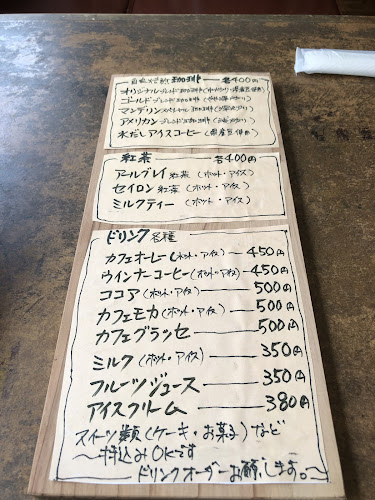 自家焙煎珈琲 ── 各400円
オリジナルブレンド珈琲
ゴールドブレンド珈琲
マンデリンスペシャル
アメリカンブレンド珈琲
水だしアイスコーヒー
紅茶 ── 各400円
アールグレイ紅茶(ホット・アイス)
セイロン紅茶(ホット・アイス)
ミルクティー(ホット・アイス)
ドリンク各種
カフェオーレ(ホット・アイス)〜450円
ウインナーコーヒー(ホット・アイス)〜450円
ココア(ホット・アイス)── 500円
カフェモカ(ホット・アイス)── 500円
カフェグラッセ ── 500円
ミルク(ホット・アイス)── 350円
フルーツジュース ── 350円
アイスクリーム ── 380円
スイーツ類(ケーキ・お菓子)など
〜持込みOKです
─ドリンクオーダーお願いします。〜